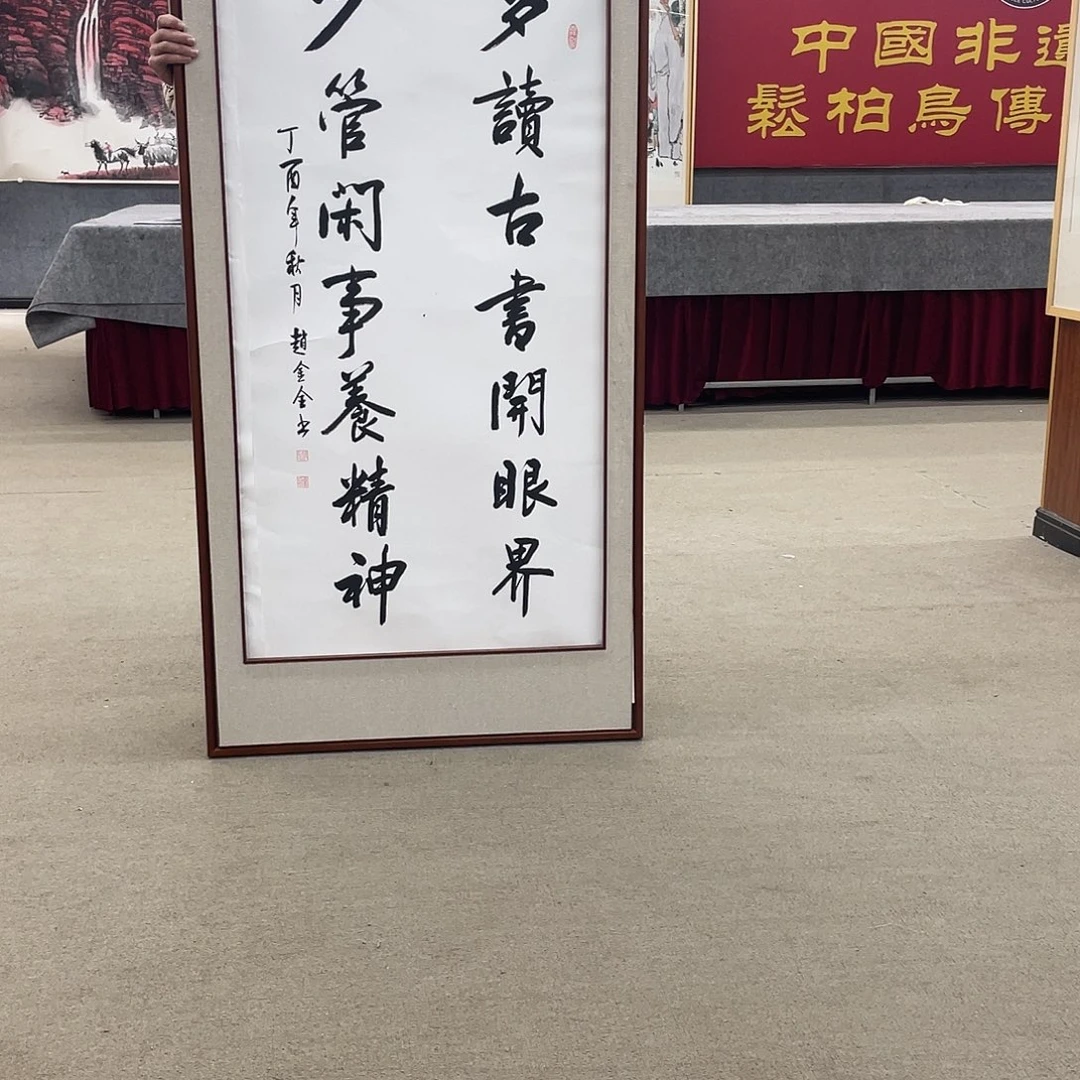 多讀古書開眼界
少管閑事養精神
丁酉年秋月 趙金金書
中國非遺
鬆柏鳥傳